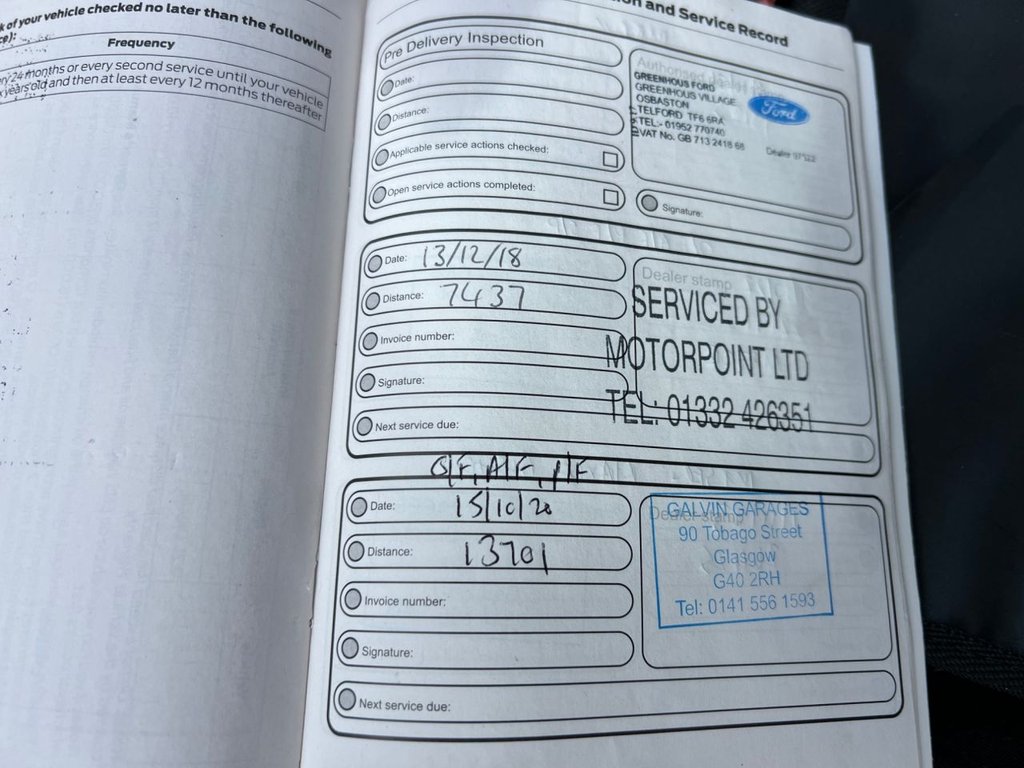 k of your vehicle checked no later than the following
ce):
Frequency
ry 24 months or every second service until your vehicle
x years old and then at least every 12 months thereafter
on and Service Record
Pre Delivery Inspection
Date:
Distance:
Applicable service actions checked:
Open service actions completed:
GREENHOUS FORD
GREENHOUS VILLAGE
OSBASTON
TELFORD TF6 6RA
TEL:- 01952 770740
VAT No. GB 713 2418 68
Ford
Signature:
Date: 13/12/18
Distance: 7437
Invoice number:
Signature:
Next service due:
Dealer stamp
SERVICED BY
MOTORPOINT LTD
TEL: 01332 426351
O/F, A/F, P/F
Date: 15/10/20
Distance: 13701
Invoice number:
Signature:
Next service due:
Dealer stamp
GALVIN GARAGES
90 Tobago Street
Glasgow
G40 2RH
Tel: 0141 556 1593